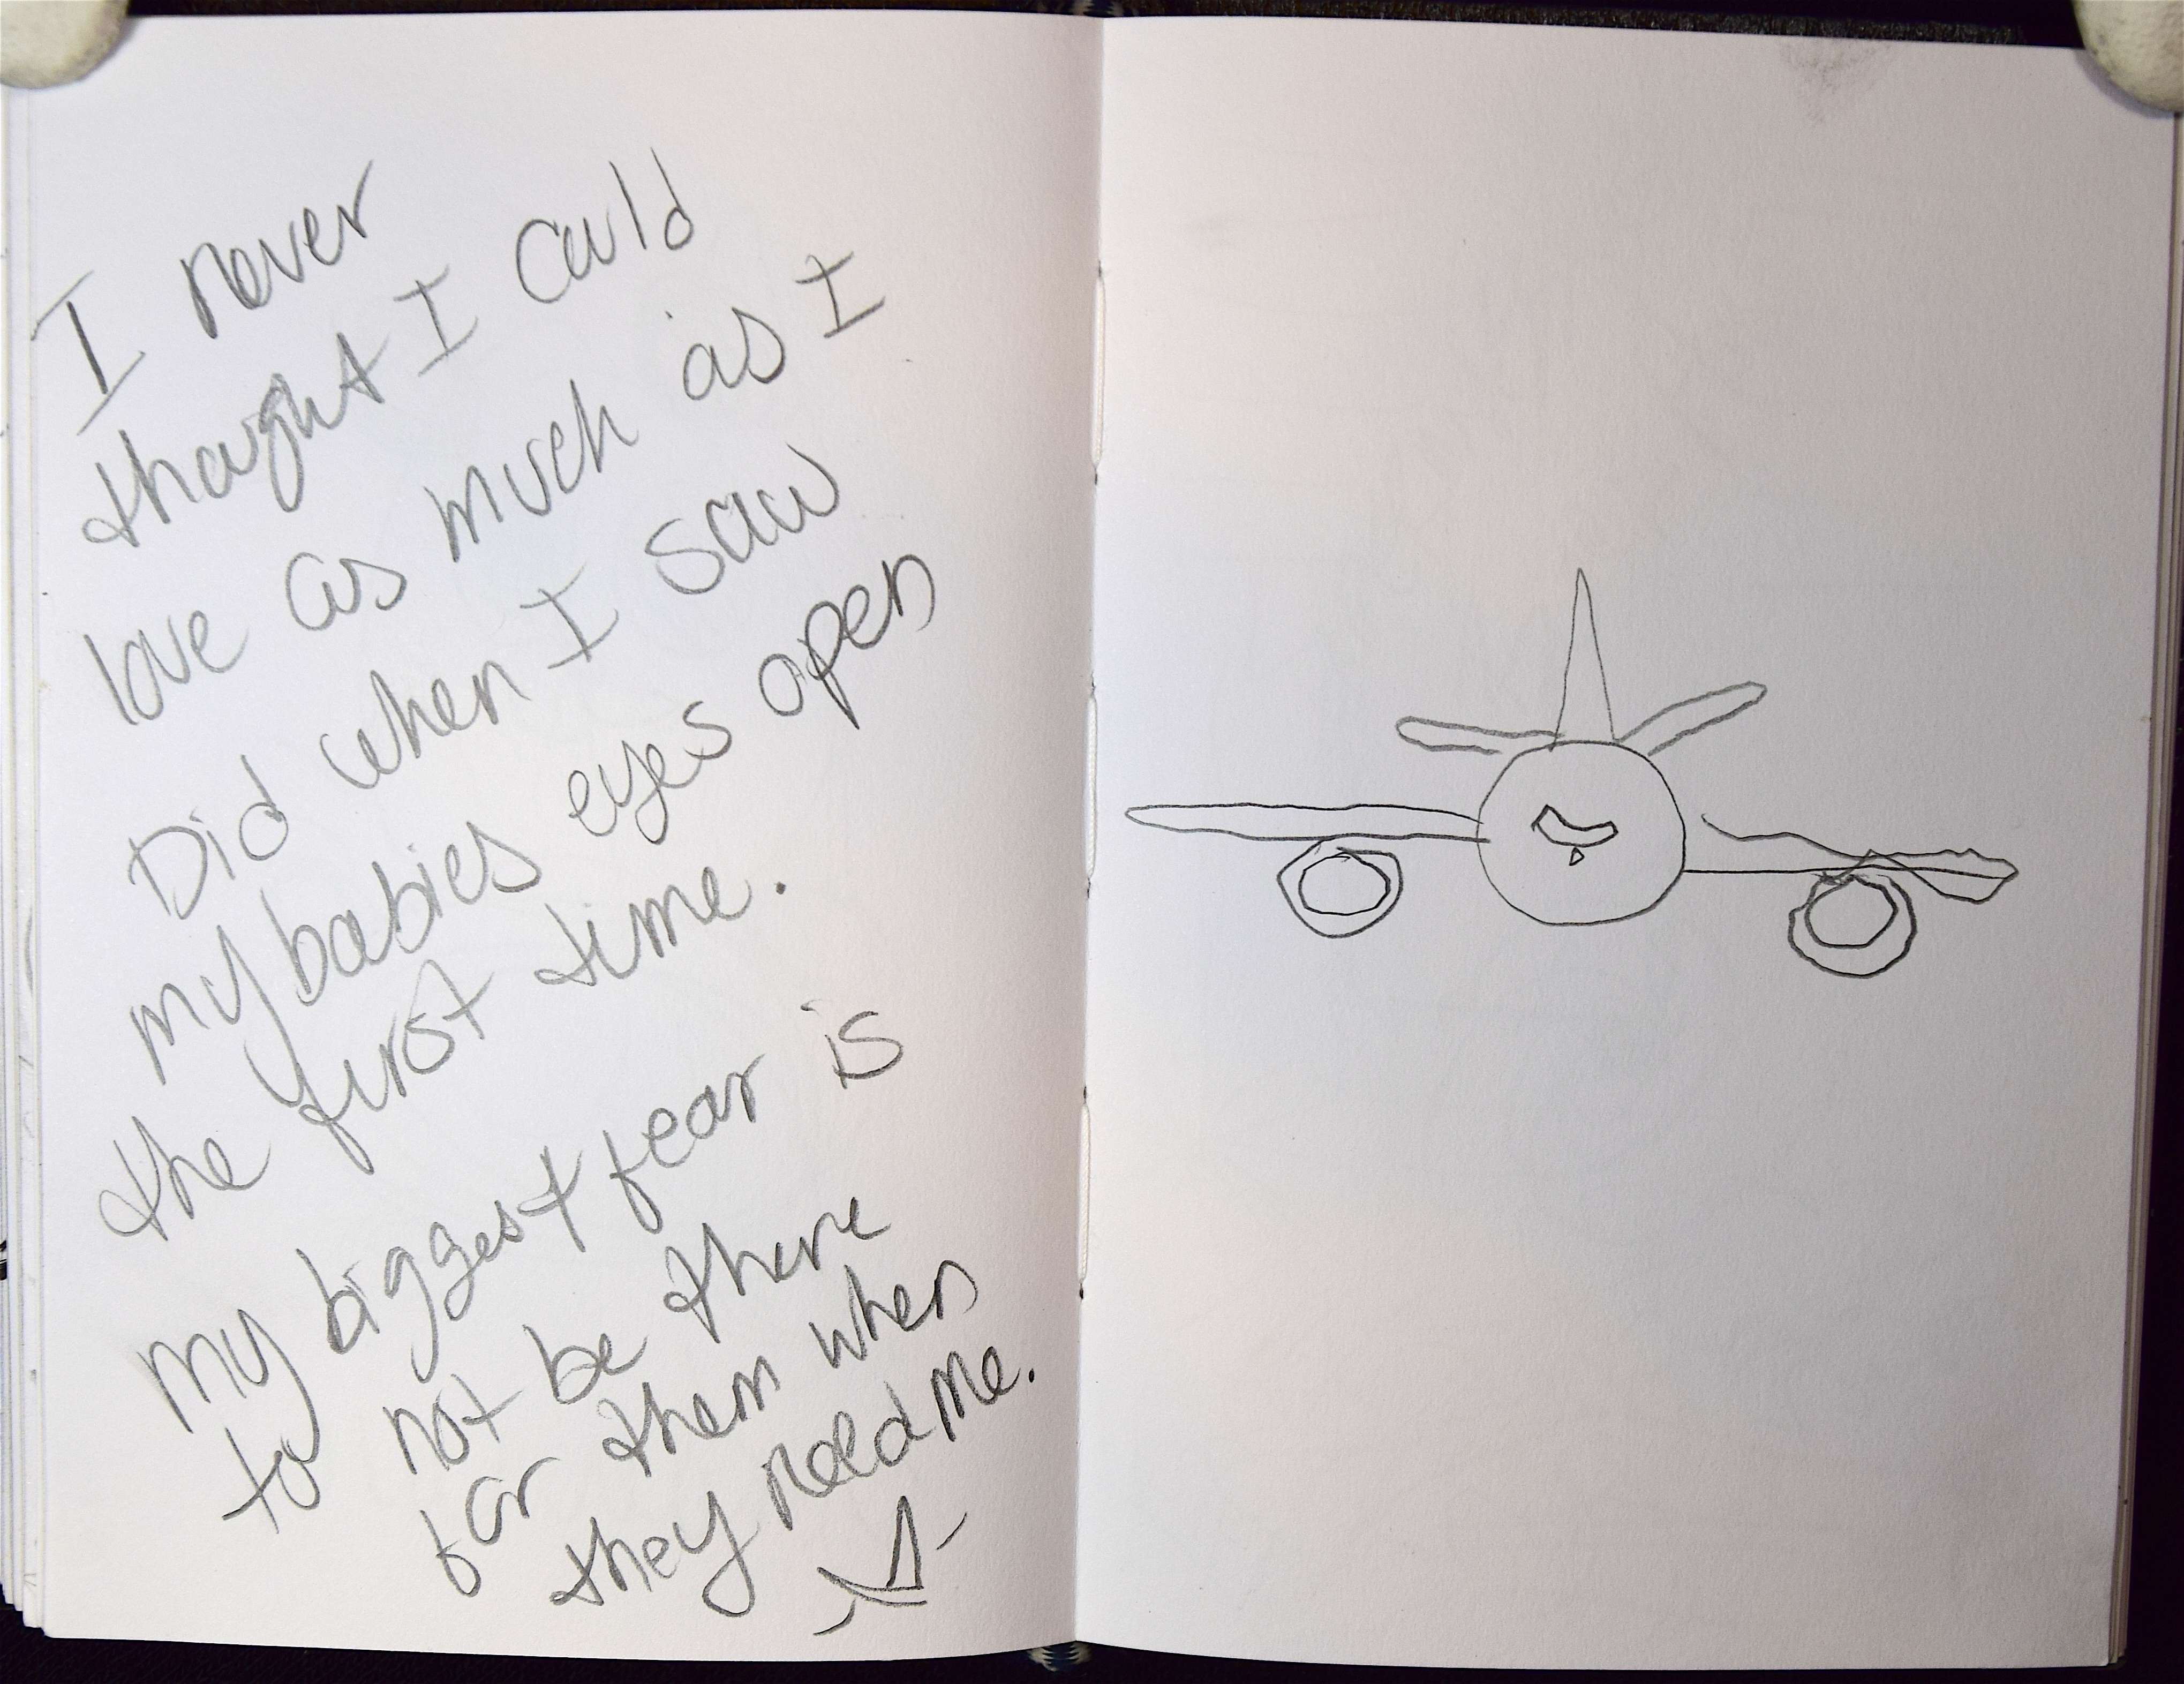 I never
thought I could
love as much as I
Did when I saw
my babies eyes open
the first time.
My biggest fear is
to not be there
for them when
they need me.